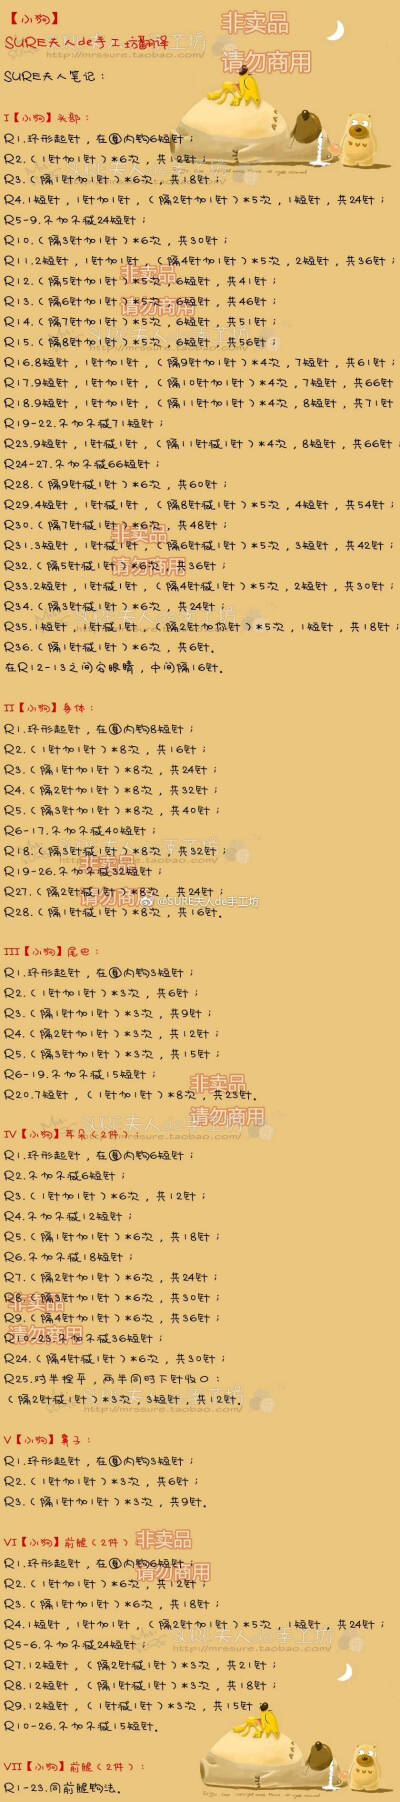 【小狗】
SURE夫人de手工坊翻译
SURE夫人笔记：
非卖品
请勿商用
I【小狗】头部：
R1.环形起针，在圈内钩6短针；
R2.（1针加1针）*6次，共12针；
R3.（隔1针加1针）*6次，共18针；
R4.1短针，1针加1针，（隔2针加1针）*5次，1短针，共24针；
R5-9.不加不减24短针；
R10.（隔3针加1针）*6次，共30针；
R11.2短针，1针加1针，（隔4针加1针）*5次，2短针，共36针；
R12.（隔5针加1针）*5次，6短针，共41针；
R13.（隔6针加1针）*5次，6短针，共46针；
R14.（隔7针加1针）*5次，6短针，共51针；
R15.（隔8针加1针）*5次，6短针，共56针；
R16.8短针，1针加1针，（隔9针加1针）*4次，7短针，共61针；
R17.9短针，1针加1针，（隔10针加1针）*4次，7短针，共66针
R18.9短针，1针加1针，（隔11针加1针）*4次，8短针，共71针
R19-22.不加不减71短针；
R23.9短针，1针减1针，（隔11针减1针）*4次，8短针，共66针
R24-27.不加不减66短针；
R28.（隔9针减1针）*6次，共60针；
R29.4短针，1针减1针，（隔8针减1针）*5次，4短针，共54针；
R30.（隔7针减1针）*6次，共48针；
R31.3短针，1针减1针，（隔6针减1针）*5次，3短针，共42针；
R32.（隔5针减1针）*6次，共36针；
R33.2短针，1针减1针，（隔4针减1针）*5次，2短针，共30针；
R34.（隔3针减1针）*6次，共24针；
R35.1短针，1针减1针，（隔2针加1针）*5次，1短针，共18针；
R36.（隔1针减1针）*6次，共6针。
在R12-13之间合眼睛，中间隔16针。
II【小狗】身体：
R1.环形起针，在圈内钩8短针；
R2.（1针加1针）*8次，共16针；
R3.（隔1针加1针）*8次，共24针；
R4.（隔2针加1针）*8次，共32针；
R5.（隔3针加1针）*8次，共40针；
R6-17.不加不减40短针；
R18.（隔3针减1针）*8次，共32针；
R19-26.不加不减32短针；
R27.（隔2针减1针）*8次，共24针；
R28.（隔1针减1针）*8次，共16针。
@SURE夫人de手工坊
III【小狗】尾巴：
R1.环形起针，在圈内钩3短针；
R2.（1针加1针）*3次，共6针；
R3.（隔1针加1针）*3次，共9针；
R4.（隔2针加1针）*3次，共12针；
R5.（隔3针加1针）*3次，共15针；
R6-19.不加不减15短针；
R20.7短针，（1针加1针）*8次，共23针。
IV【小狗】耳朵（2件）：
R1.环形起针，在圈内钩6短针；
R2.不加不减6短针；
R3.（1针加1针）*6次，共12针；
R4.不加不减12短针；
R5.（隔1针加1针）*6次，共18针；
R6.不加不减18短针；
R7.（隔2针加1针）*6次，共24针；
R8.（隔3针加1针）*6次，共30针；
R9.（隔4针加1针）*6次，共36针；
R10-23.不加不减36短针；
R24.（隔4针减1针）*6次，共30针；
R25.对半捏平，两半同时下针收口：
（隔2针减1针）*3次，3短针，共12针。
V【小狗】鼻子：
R1.环形起针，在圈内钩3短针；
R2.（1针加1针）*3次，共6针；
R3.（隔1针加1针）*3次，共9针。
VI【小狗】前腿（2件）：
R1.环形起针，在圈内钩6短针；
R2.（1针加1针）*6次，共12针；
R3.（隔1针加1针）*6次，共18针；
R4.1短针，1针加1针，（隔2针加1针）*5次，1短针，共24针；
R5-6.不加不减24短针；
R7.12短针，（隔2针减1针）*3次，共21针；
R8.12短针，（隔1针减1针）*3次，共18针；
R9.12短针，（1针减1针）*3次，共15针；
R10-26.不加不减15短针。
VII【小狗】前腿（2件）：
R1-23.同前腿钩法。